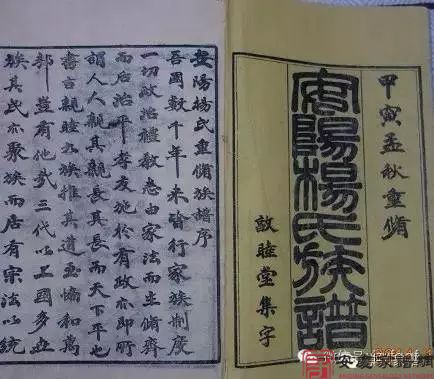 甲寅孟秋重脩
安陽楊氏族譜
敦睦堂集字
安陽楊氏重脩族譜序
吾國數千年來皆行家族制度
一切政治禮教悉由家法而生脩齊
而后治平孝友施於有政亦即所
謂人人親其親長其長而天下平也
書言親睦九族推其道至協和萬
邦豈有他哉三代以上國多世
族其民亦聚族而居有宗法以統
安慶家譜網